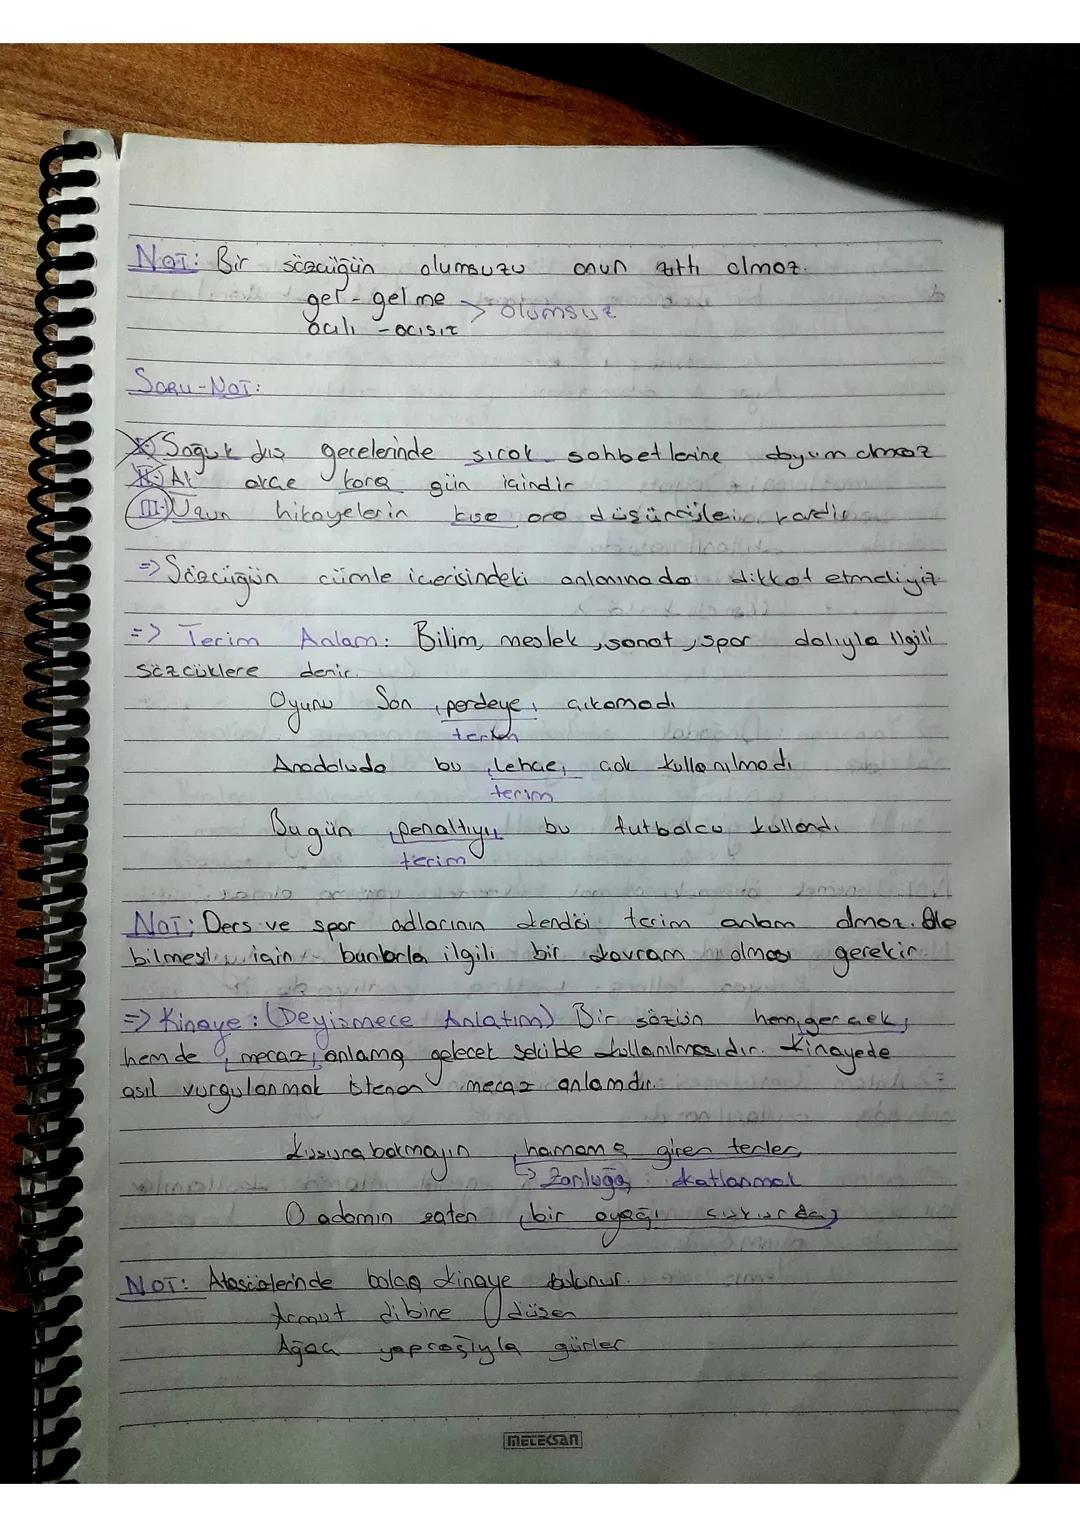 NOT: Bir sözcüğün olumsuzu onun zıttı olmaz.
gel - gelme > olumsuz
acılı - acısız
SORU-NOT:
I-) Soğuk kış gecelerinde sıcak sohbetlerine doyum olmaz
II-) Ak akçe kara gün içindir
III-) Uzun hikayelerin kısa ara düşüncüleri vardır
=> Sözcüğün cümle içerisindeki anlamına da dikkat etmeliyiz
=> Terim Anlam: Bilim, meslek, sanat, spor dalıyla ilgili
sözcüklere denir.
Oyunu Son perdeye çıkamadı
terim
Anadoluda bu lehçe, çok kullanılmadı
terim
Bugün penaltıyı bu futbolcu kullandı.
terim
NOT: Ders ve spor adlarının kendisi terim anlam olmaz. Ola
bilmesi için bunlarla ilgili bir kavram olması gerekir.
=> Kinaye: (Deyişmece Anlatım) Bir sözün hem gerçek,
hem de mecaz anlama gelecek şekilde kullanılmasıdır. Kinayede
asıl vurgulanmak istenen mecaz anlamdır.
Kusura bakmayın, hamama giren terler
-> Zorluğa katlanmak
O adamın zaten bir ayağı çukurda
NOT: Atasözlerinde bolca kinaye bulunur.
Armut dibine düşer
Ağaç yaprağıyla gürler
METEKSAN